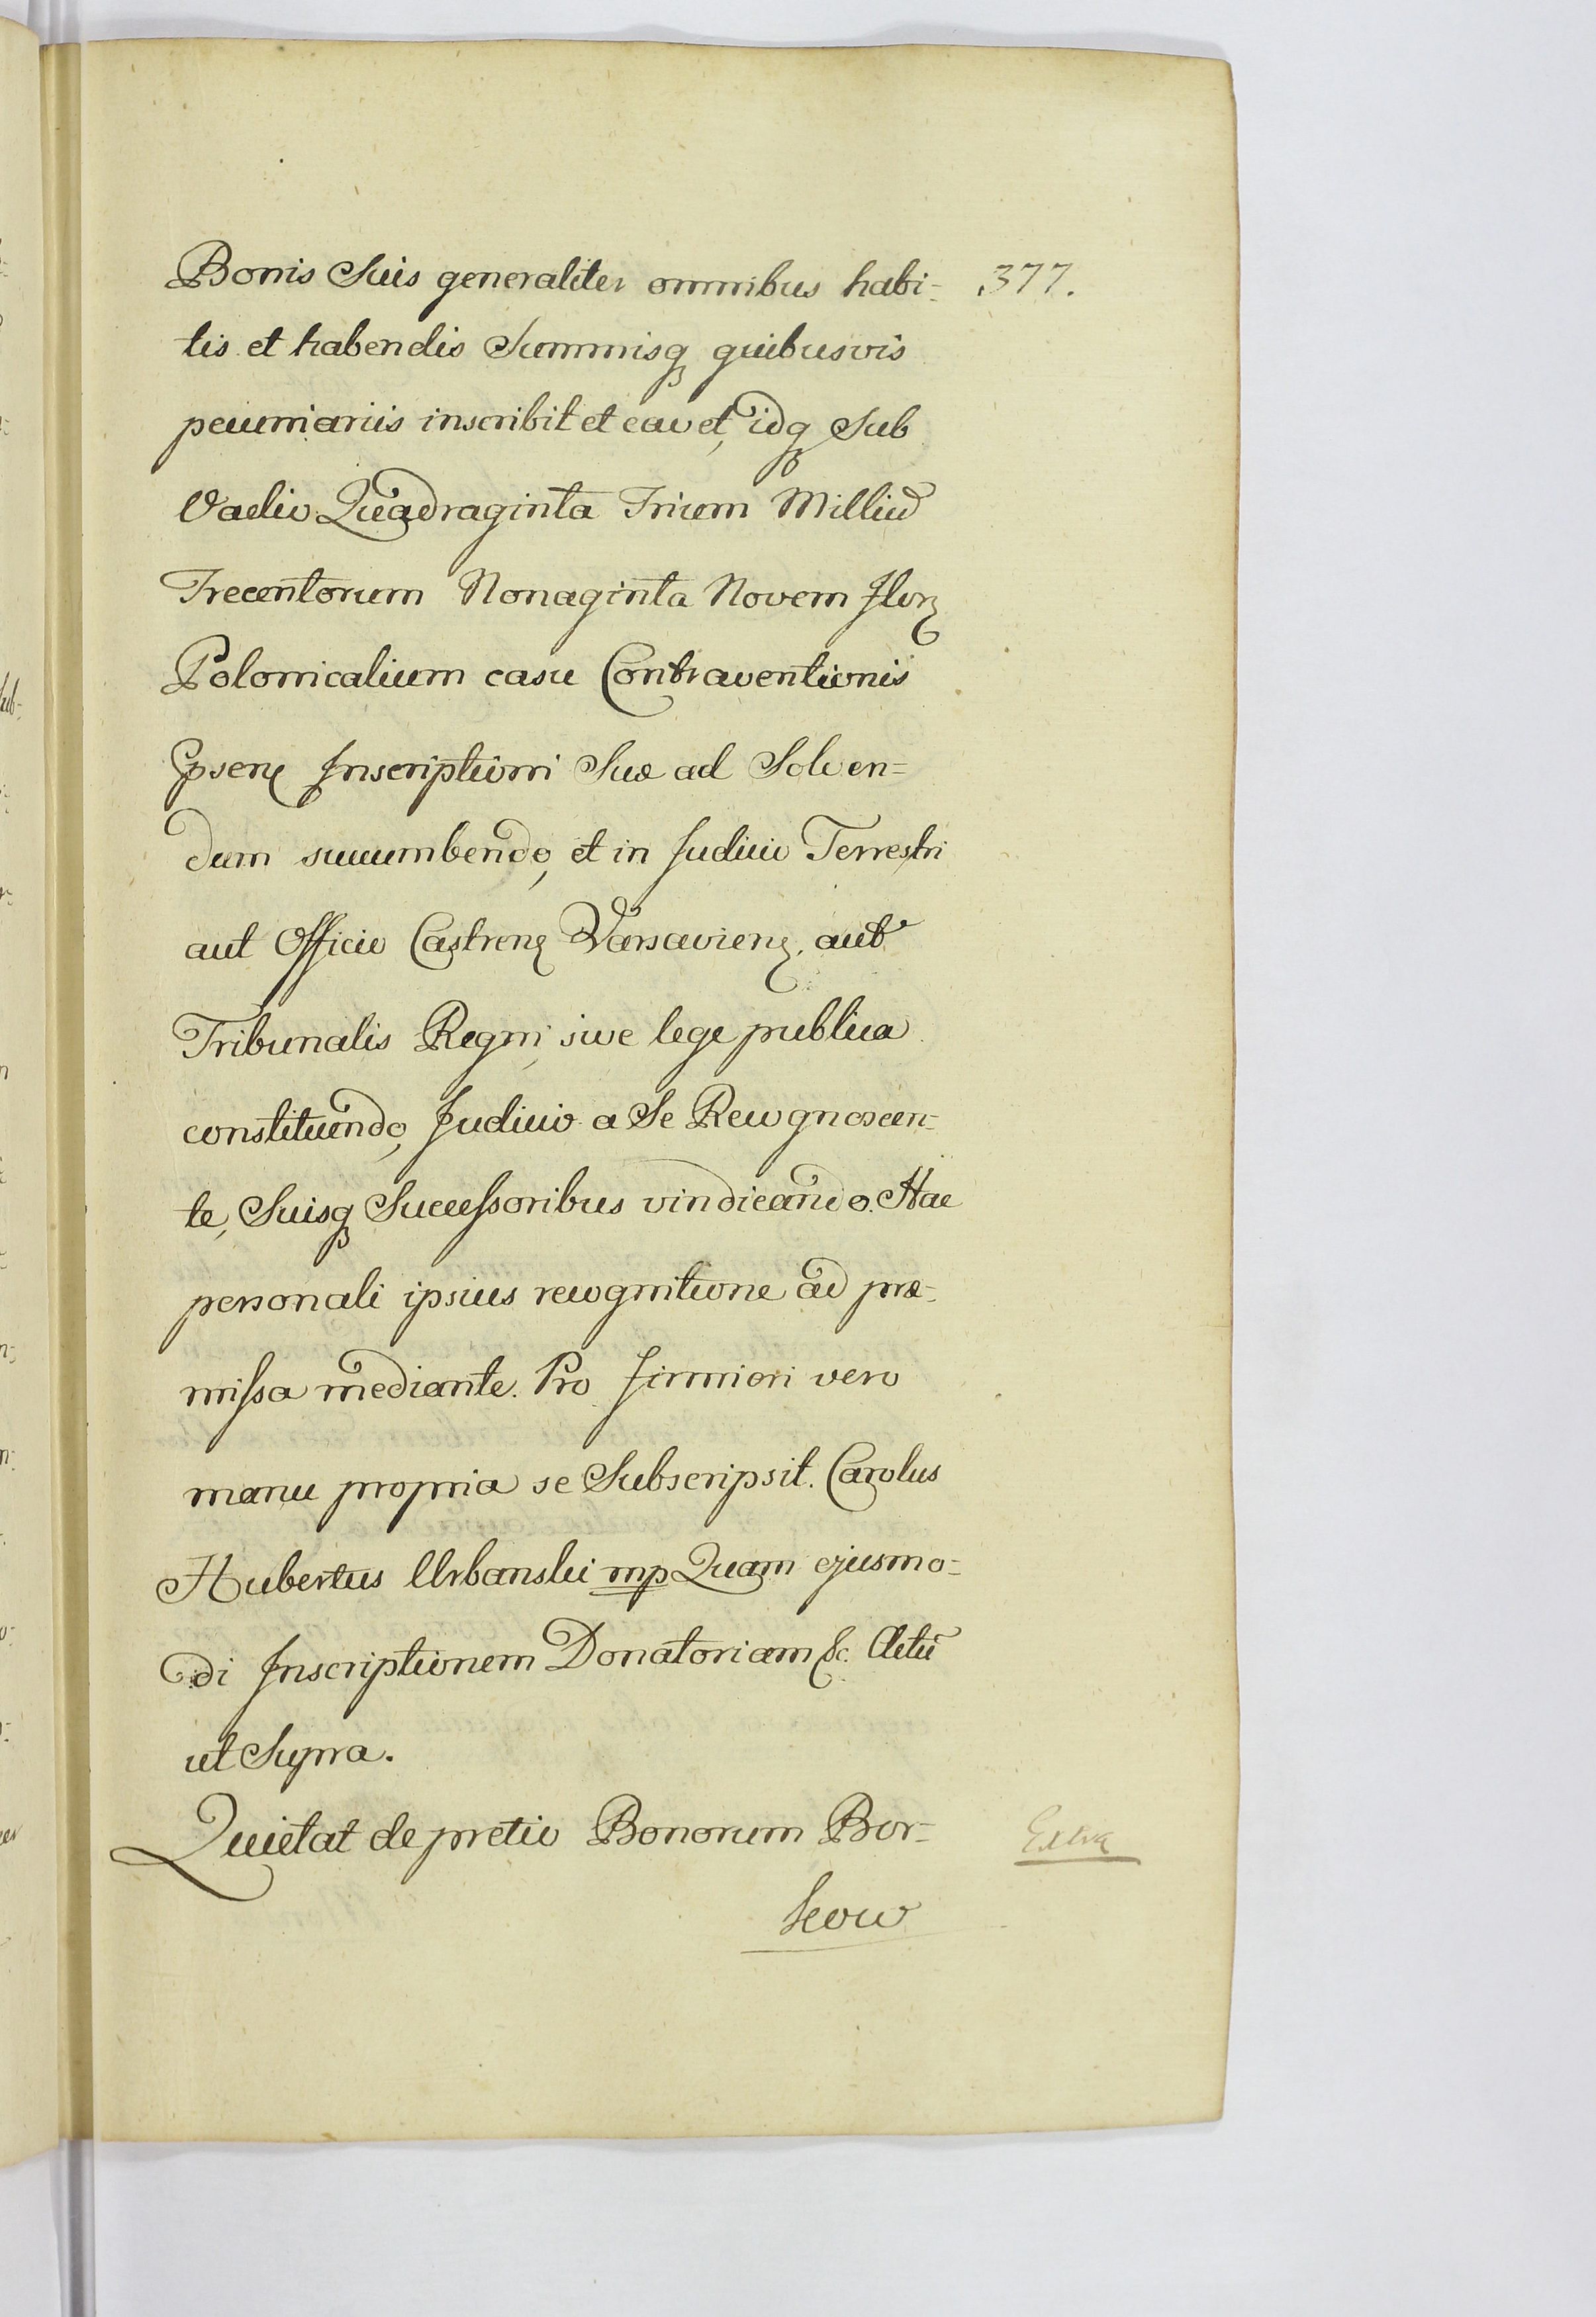 Bonis Suis generaliter omnibus habi= 377.
tis et habendis Summisq quibusvis
pecuniariis inscribit et cavet, idq Sub
Vadio Quadraginta Trium Milliū
Trecentorum Nonaginta Novem Flor
Polonicalium casu Contraventionis
Inscriptioni Suæ ad Solven=
dum succumbendo, et in Judicio Terrestri
aut Officio Castren Varsavien. aut
Tribunalis Regni, sive lege publica
constituendo, Judicio a Se Recognoscen=
te, Suisq Successoribus vindicando. Hac
personali ipsius recognitione ad præ=
missa mediante. Pro firmiori vero
manu propria se Subscripsit. Carolus
Hubertus Urbanski mp Quam ejusmo=
di Inscriptionem Donatoriam &c. Actū
ut Supra.
Quietat de pretio Bonorum Bor= Extra
kow